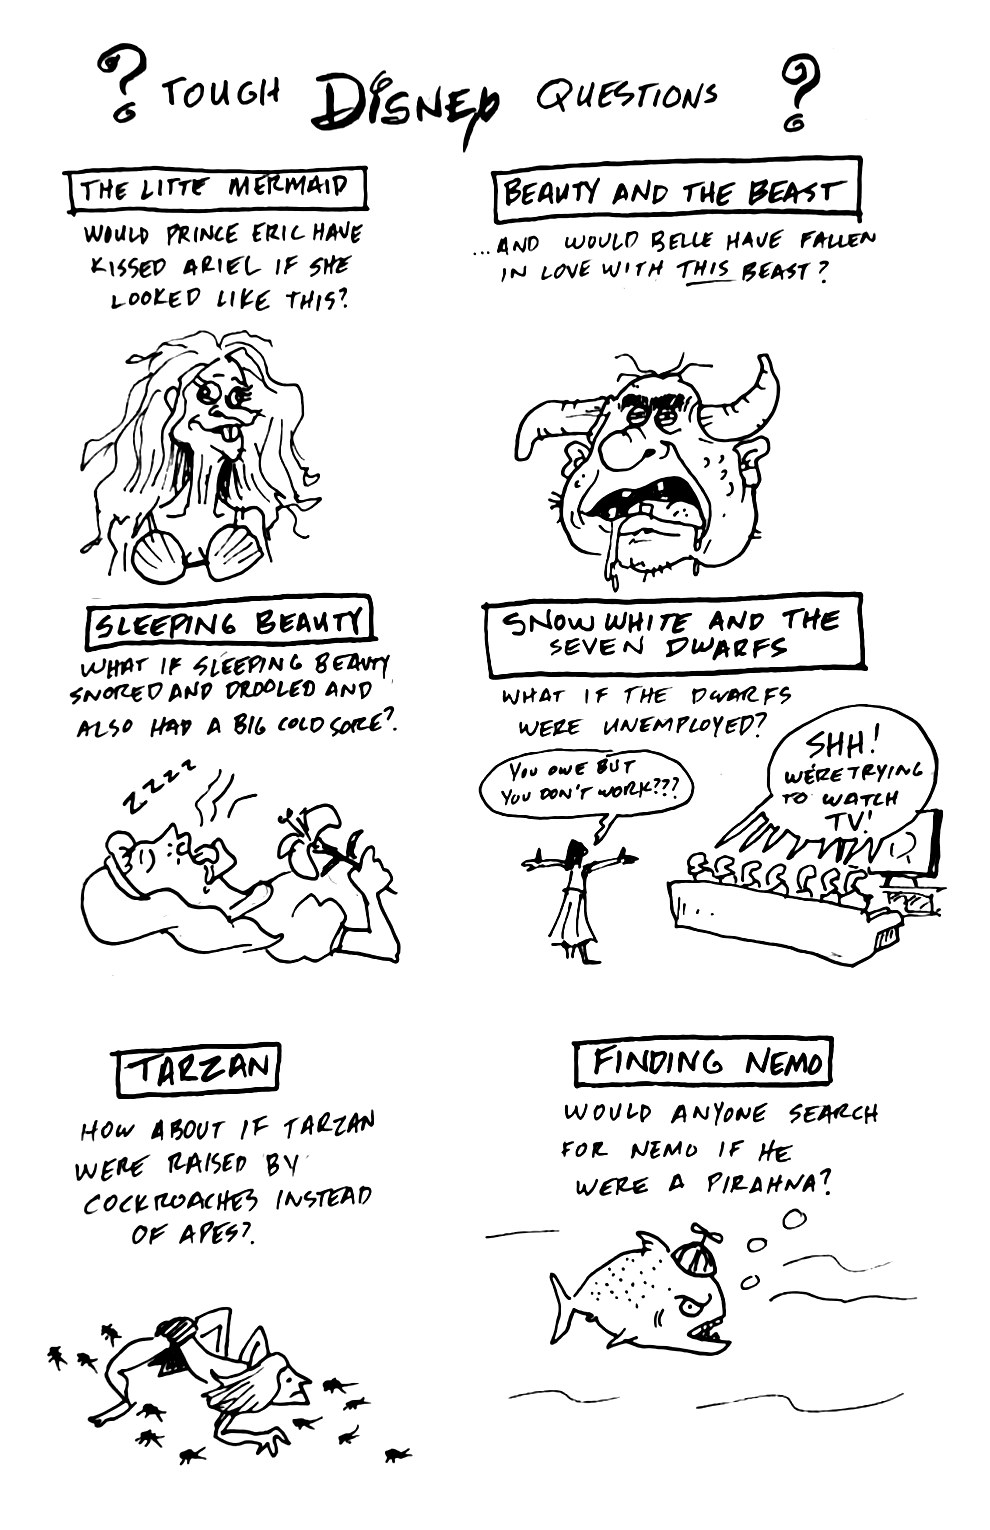 ? TOUGH DISNEY QUESTIONS ?
THE LITTE MERMAID
WOULD PRINCE ERIC HAVE
KISSED ARIEL IF SHE
LOOKED LIKE THIS?
BEAUTY AND THE BEAST
...AND WOULD BELLE HAVE FALLEN
IN LOVE WITH THIS BEAST?
SLEEPING BEAUTY
WHAT IF SLEEPING BEAUTY
SNORED AND DROOLED AND
ALSO HAD A BIG COLD SORE?
ZZZZ
SNOW WHITE AND THE
SEVEN DWARFS
WHAT IF THE DWARFS
WERE UNEMPLOYED?
YOU OWE BUT
YOU DON'T WORK???
SHH!
WE'RE TRYING
TO WATCH
TV!
TARZAN
HOW ABOUT IF TARZAN
WERE RAISED BY
COCKROACHES INSTEAD
OF APES?
FINDING NEMO
WOULD ANYONE SEARCH
FOR NEMO IF HE
WERE A PIRAHNA?